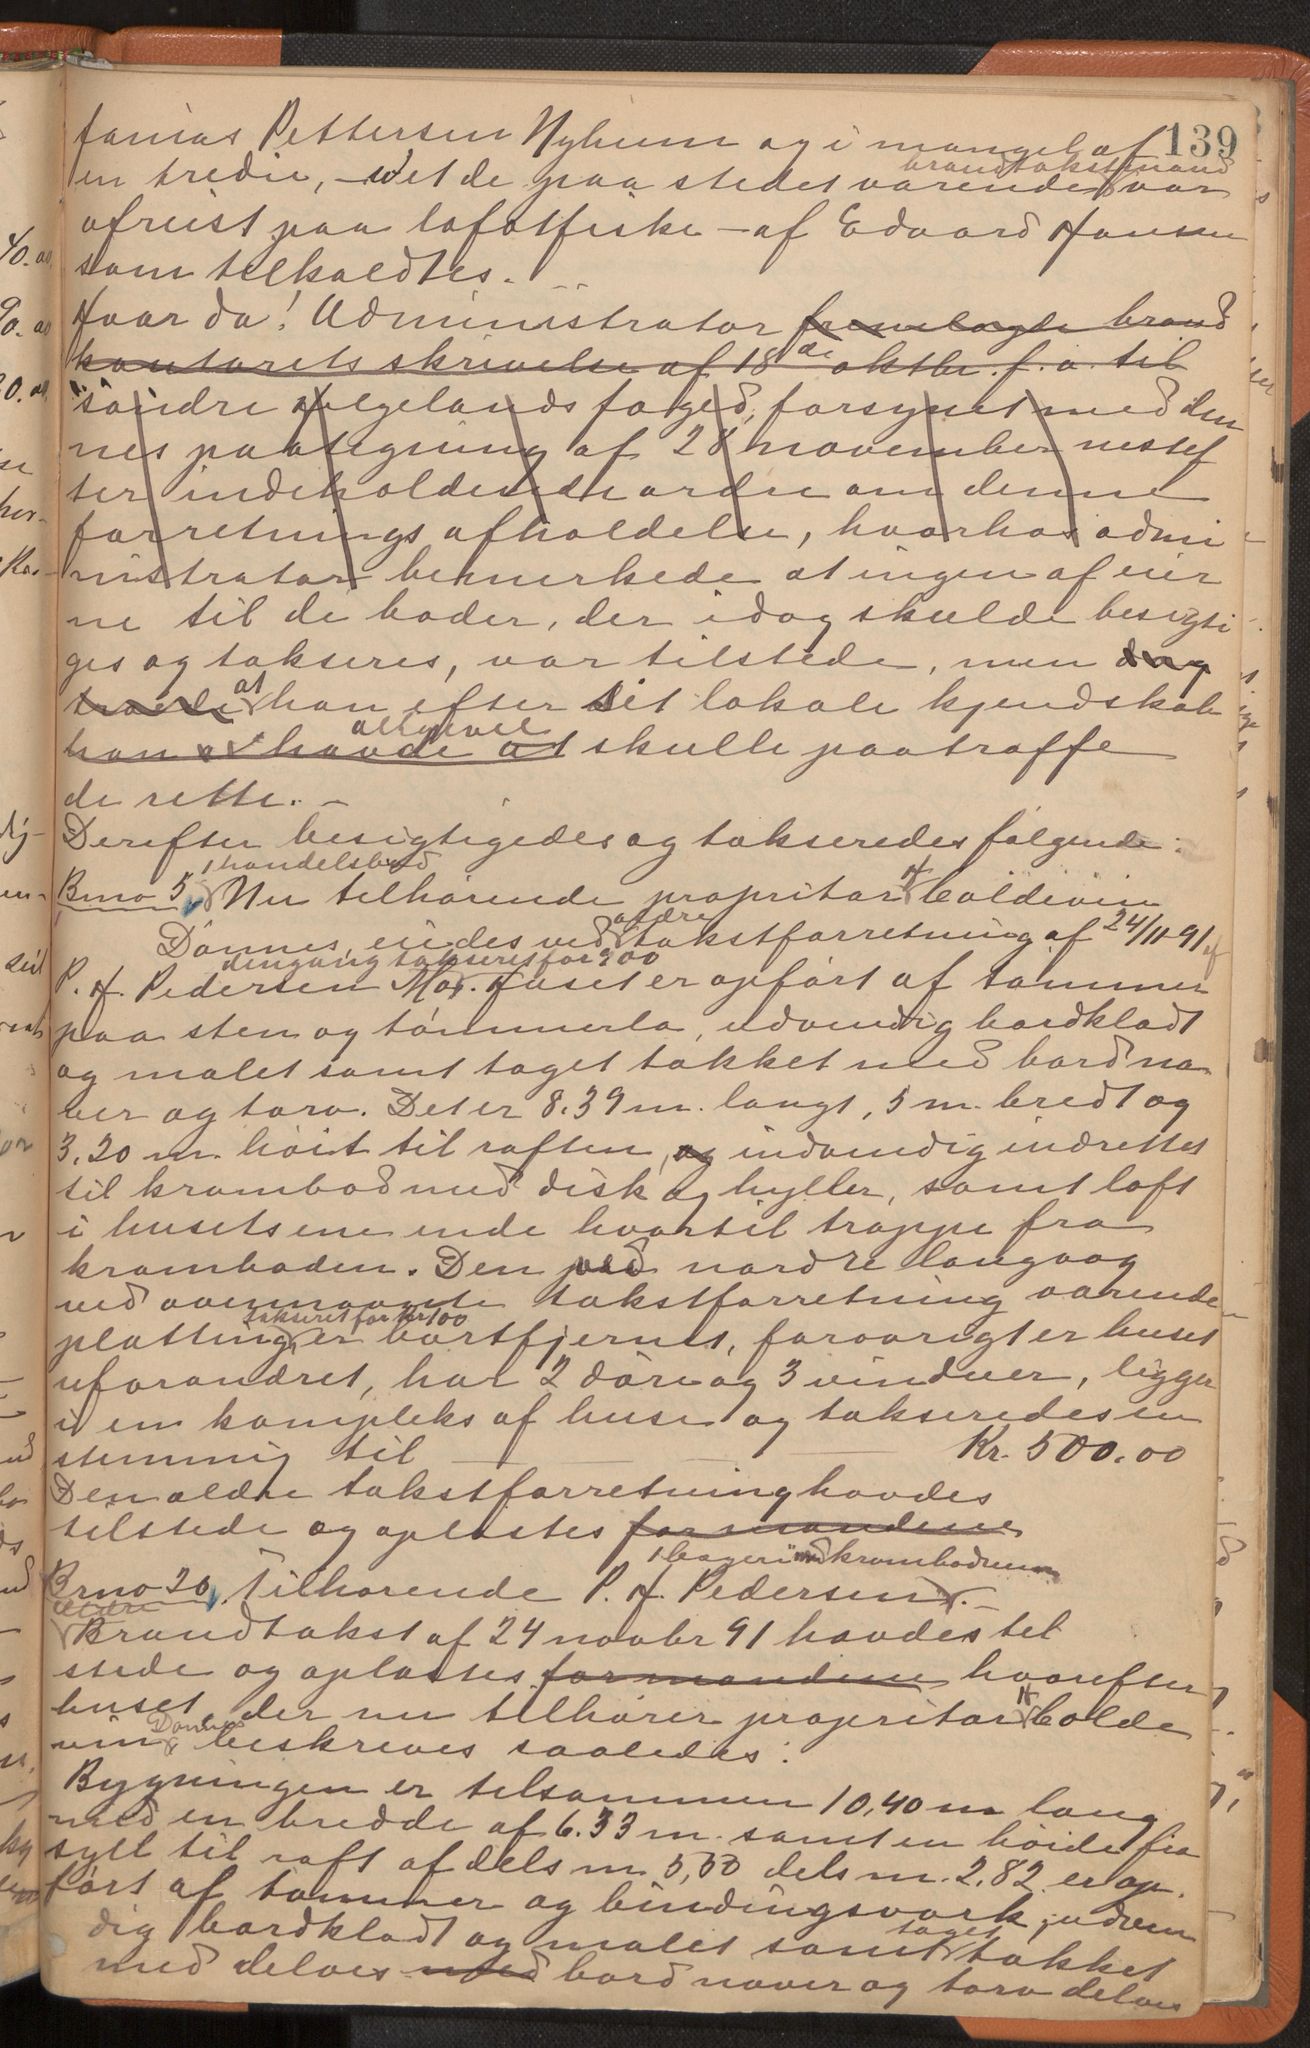 139
fanias Pettersen Nyheim og i mangel af
en tredie, – idet de paa stedet værende brandtakstmænd var
afreist paa lofotfiske – af Edvard Hansen
som tilkaldtes.
Hvor da! Administrator fremlagde brand
kontorets skrivelse af 18de oktbr. f. a. til
søndre Helgelands foged, forsynet med den
nes paategning af 28 november nestef
ter indeholdende ordre om denne
forretnings afholdelse, hvorhos admi
nistrator bemerkede at ingen af eier
ne til de boder, der idag skulde besigti
ges og takseres, var tilstede, men
at han efter sit lokale kjendskab
han havde at alligevel skulle paatræffe
de rette. –
Derefter besigtigedes og takseredes følgende:
1 handelsbod
Brno 5, Nu tilhørende propritær H Coldevin
Dønnes, eiedes ved ældre takstforretning af 24/11 91 af
dengang takseret for 900
P. A. Pedersen Mo. Huset er opført af tømmer
paa sten og tømmerla, udvendig bordklædt
og malet samt taget tækket med bord næ
ver og torv. Det er 8.39 m. langt, 5 m. bredt og
3.20 m. høit til raften, og indvendig indrettet
til krambod med disk og hyller, samt loft
i husets ene ende hvortil trappe fra
kramboden. Den ved nordre langvæg
ved ovennævnte takstforretning værende
takseret for kr 100
platting, er bortfjernet, forøvrigt er huset
uforandret, har 2 døre og 3 vinduer, ligger
i en kompleks af huse og takseredes en
stemmig til Kr. 500.00
Den ældre takstforretning havdes
tilstede og oplæstes for mændene
1 bageri med krambodrum
Brno 20, Tilhørende P. A. Pedersen. –
Ældre
Brandtakst af 24 novbr 91 havdes til
stede og oplæstes for mændene hvorefter
huset, der nu tilhører propritær H Colde
vin Dønnes beskrives saaledes:
Bygningen er tilsammen 10,40 m lang
med en bredde af 6.33 m. samt en høide fra
syll til raft af dels m. 5,00 dels m. 2,82. er op.
ført af tømmer og bindingsværk, udven
dig bordklædt og malet samt taget tækket
med delvis med bord næver og torv delvis